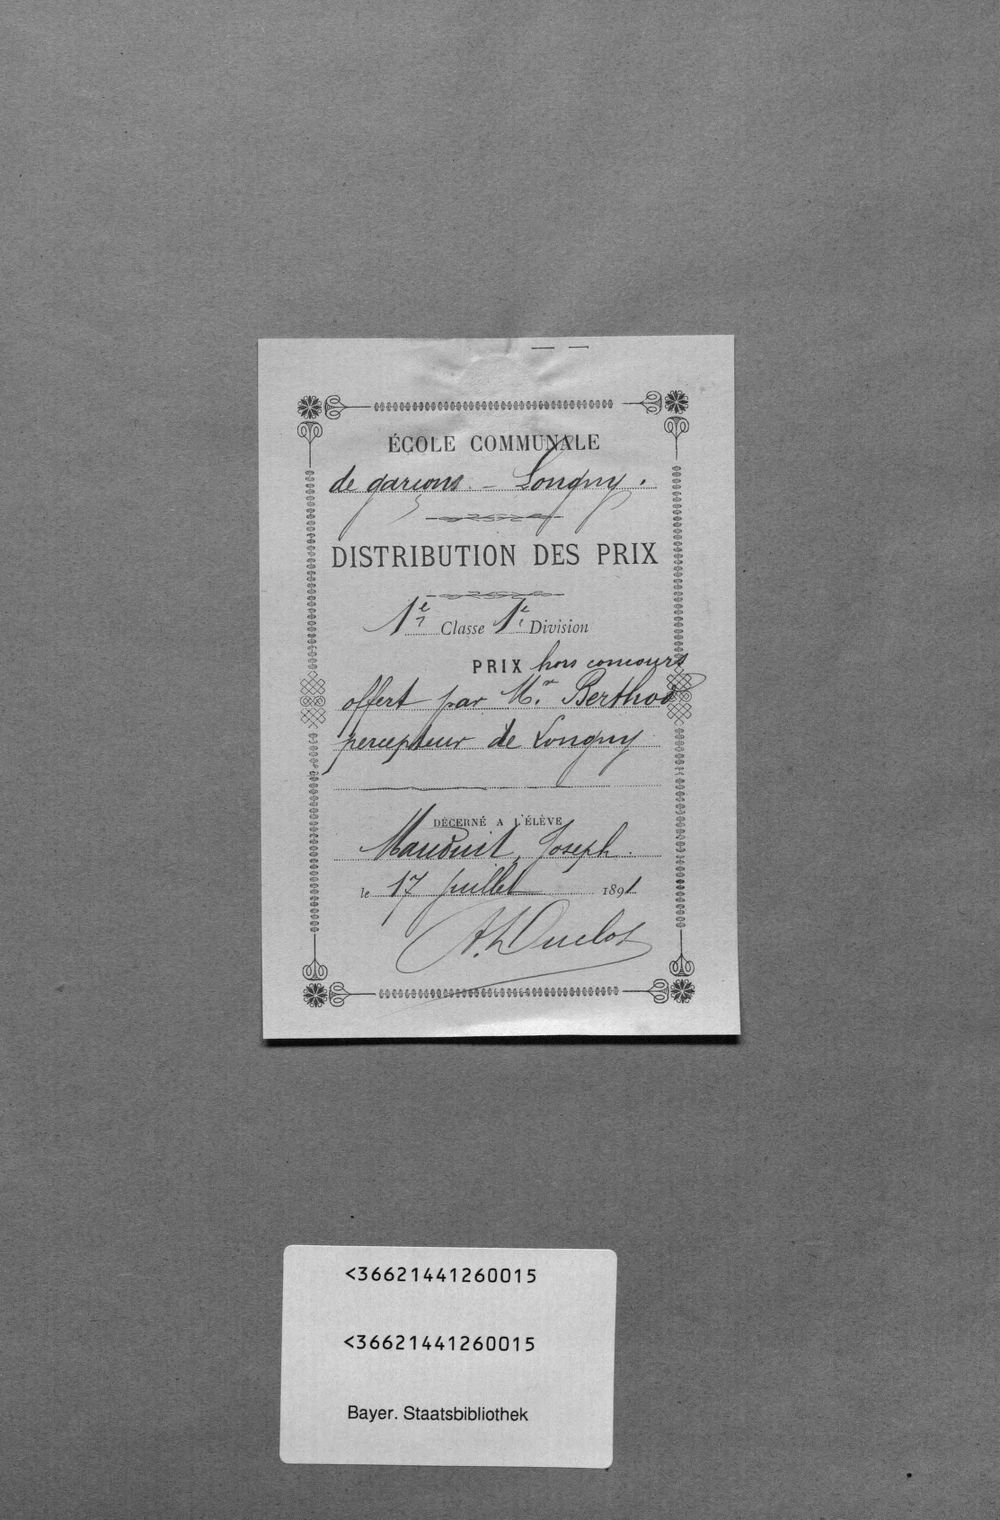 ÉCOLE COMMUNALE
de garçons. – Longny.
DISTRIBUTION DES PRIX
1e Classe 1e Division
PRIX hors concours
offert par Mr. Berthod
percepteur de Longny
DÉCERNÉ A L'ÉLÈVE
Mauduit, Joseph.
le 17 juillet 1891
A. Duclos
<36621441260015
<36621441260015
Bayer. Staatsbibliothek